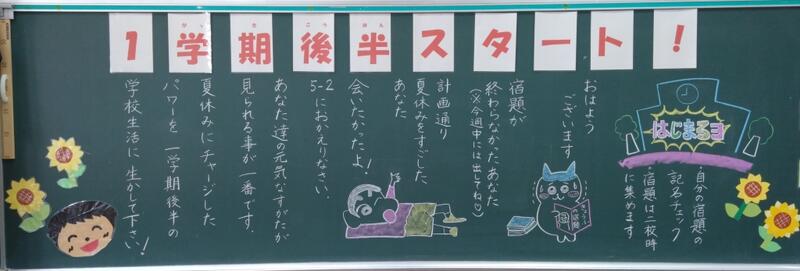 がっ き こう はん
1学期後半スタート!
はじまるヨ
・自分の宿題の
記名チェック
・宿題は二校時
に集めます
おはよう
ございます
宿題が
終わらなかったあなた
(※今週中には出してね♡)
計画通り
夏休みをすごした
あなた
会いたかったよ!
5-2におかえりなさい。
あなた達の元気なすがたが
見られる事が一番です。
夏休みにチャージした
パワーを一学期後半の
学校生活に生かして下さい!